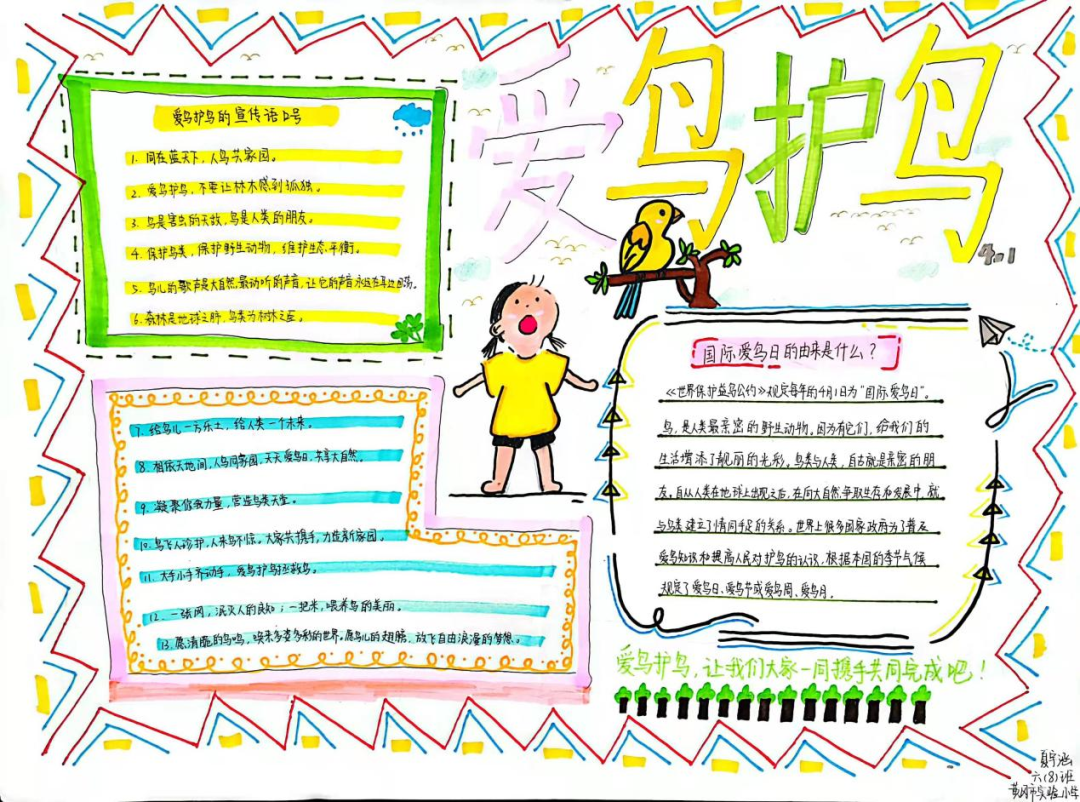 爱鸟护鸟
4.1
爱鸟护鸟的宣传语口号
1. 同在蓝天下,人鸟共家园。
2. 爱鸟护鸟,不要让林木感到孤独。
3. 鸟是害虫的天敌,鸟是人类的朋友。
4. 保护鸟类,保护野生动物,维护生态平衡。
5. 鸟儿的歌声是大自然最动听的声音,让它的声音永远在耳边回荡。
6. 森林是地球之肺,鸟类为树林之
7. 给鸟儿一方乐土,给人类一个未来。
8. 相依天地间,人鸟同家园,天天爱鸟日,共享大自然。
9. 凝聚你我力量,营造鸟类天堂。
10. 鸟飞人珍护,人来鸟不惊。大家共携手,力造新家园。
11. 大手小手齐动手,爱鸟护鸟拯救鸟。
12. 一张网,泯灭人的良知;一把米,喂养鸟的美丽。
13. 愿清脆的鸟鸣,唤来多姿多彩的世界。愿鸟儿的翅膀,放飞自由浪漫的梦想。
国际爱鸟日的由来是什么?
《世界保护益鸟公约》规定每年的4月1日为“国际爱鸟日”。
鸟,是人类最亲密的野生动物。因为有它们,给我们的
生活增添了靓丽的光彩。鸟类与人类,自古就是亲密的朋
友。自从人类在地球上出现之后,在向大自然争取生存和发展中,就
与鸟类建立了情同手足的关系。世界上很多国家政府为了普及
爱鸟知识和提高人民对护鸟的认识,根据本国的季节气候
规定了爱鸟日、爱鸟节或爱鸟周、爱鸟月。
爱鸟护鸟,让我们大家一同携手共同完成吧!
夏宇涵
六(8)班
实验小学